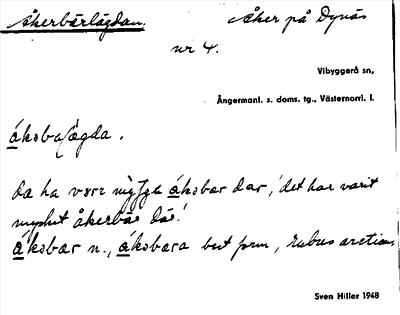 Åkerbärlägdan.
Åker på Dynäs
nr 4.
Vibyggerå sn,
Ångermanl. s. doms. tg., Västernorrl. l.
áksba(lägda.
Da ha vɤrɛ áksbar dar, 'det har varit
mycket åkerbär där!
áksbar n., áksbara best form, Rubus arcticus
Sven Hiller 1948